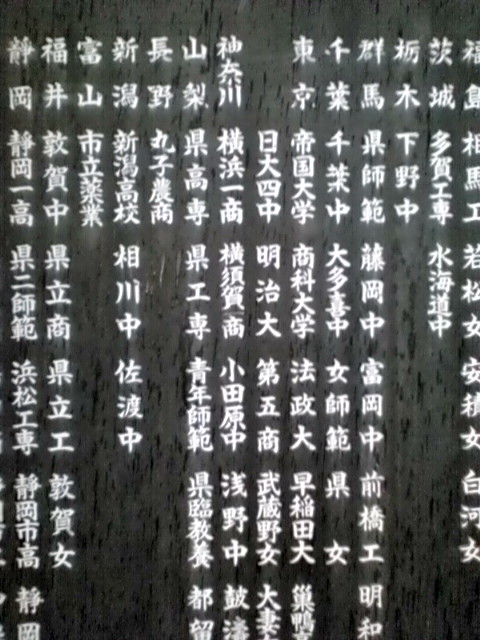 福島 相馬工 若松女 安積女 白河女
茨城 多賀工専 水海道中
栃木 下野中
群馬 県師範 藤岡中 富岡中 前橋工 明和
千葉 千葉中 大多喜中 女師範 県女
東京 帝国大学 商科大学 法政大 早稲田大 巣鴨
日大四中 明治大 第五商 武蔵野女 大妻
神奈川 横浜一商 横須賀商 小田原中 浅野中
山梨 県高専 県工専 青年師範 県臨教養 都留
長野 丸子農商
新潟 新潟高校 相川中 佐渡中
富山 市立薬業
福井 敦賀中 県立商 県立工 敦賀女
静岡 静岡一高 県二師範 浜松工専 静岡市高 静岡